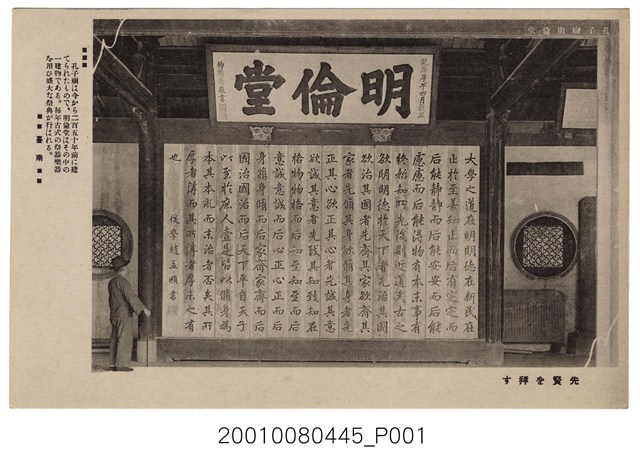 孔子廟明倫堂
明倫堂
大學之道在明明德在新民在
止於至善知止而后有定定而
后能靜靜而后能安安而后能
慮慮而后能得物有本末事有
終始知所先後則近道矣古之
欲明明德於天下者先治其國
欲治其國者先齊其家欲齊其
家者先脩其身欲脩其身者先
正其心欲正其心者先誠其意
欲誠其意者先致其知致知在
格物物格而后知至知至而后
意誠意誠而后心正心正而后
身脩身脩而后家齊家齊而后
國治國治而后天下平自天子
以至於庶人壹是皆以脩身為
本其本亂而末治者否矣其所
厚者薄而其所薄者厚未之有
也
後學趙孟頫書
孔子廟は今から二百五十年前に建
てられたもので、明倫堂はその中の
一建物である。毎年古式の祭器樂器
を用ひ盛大な祭典が行はれる。
臺南
先賢を拜す
20010080445_P001